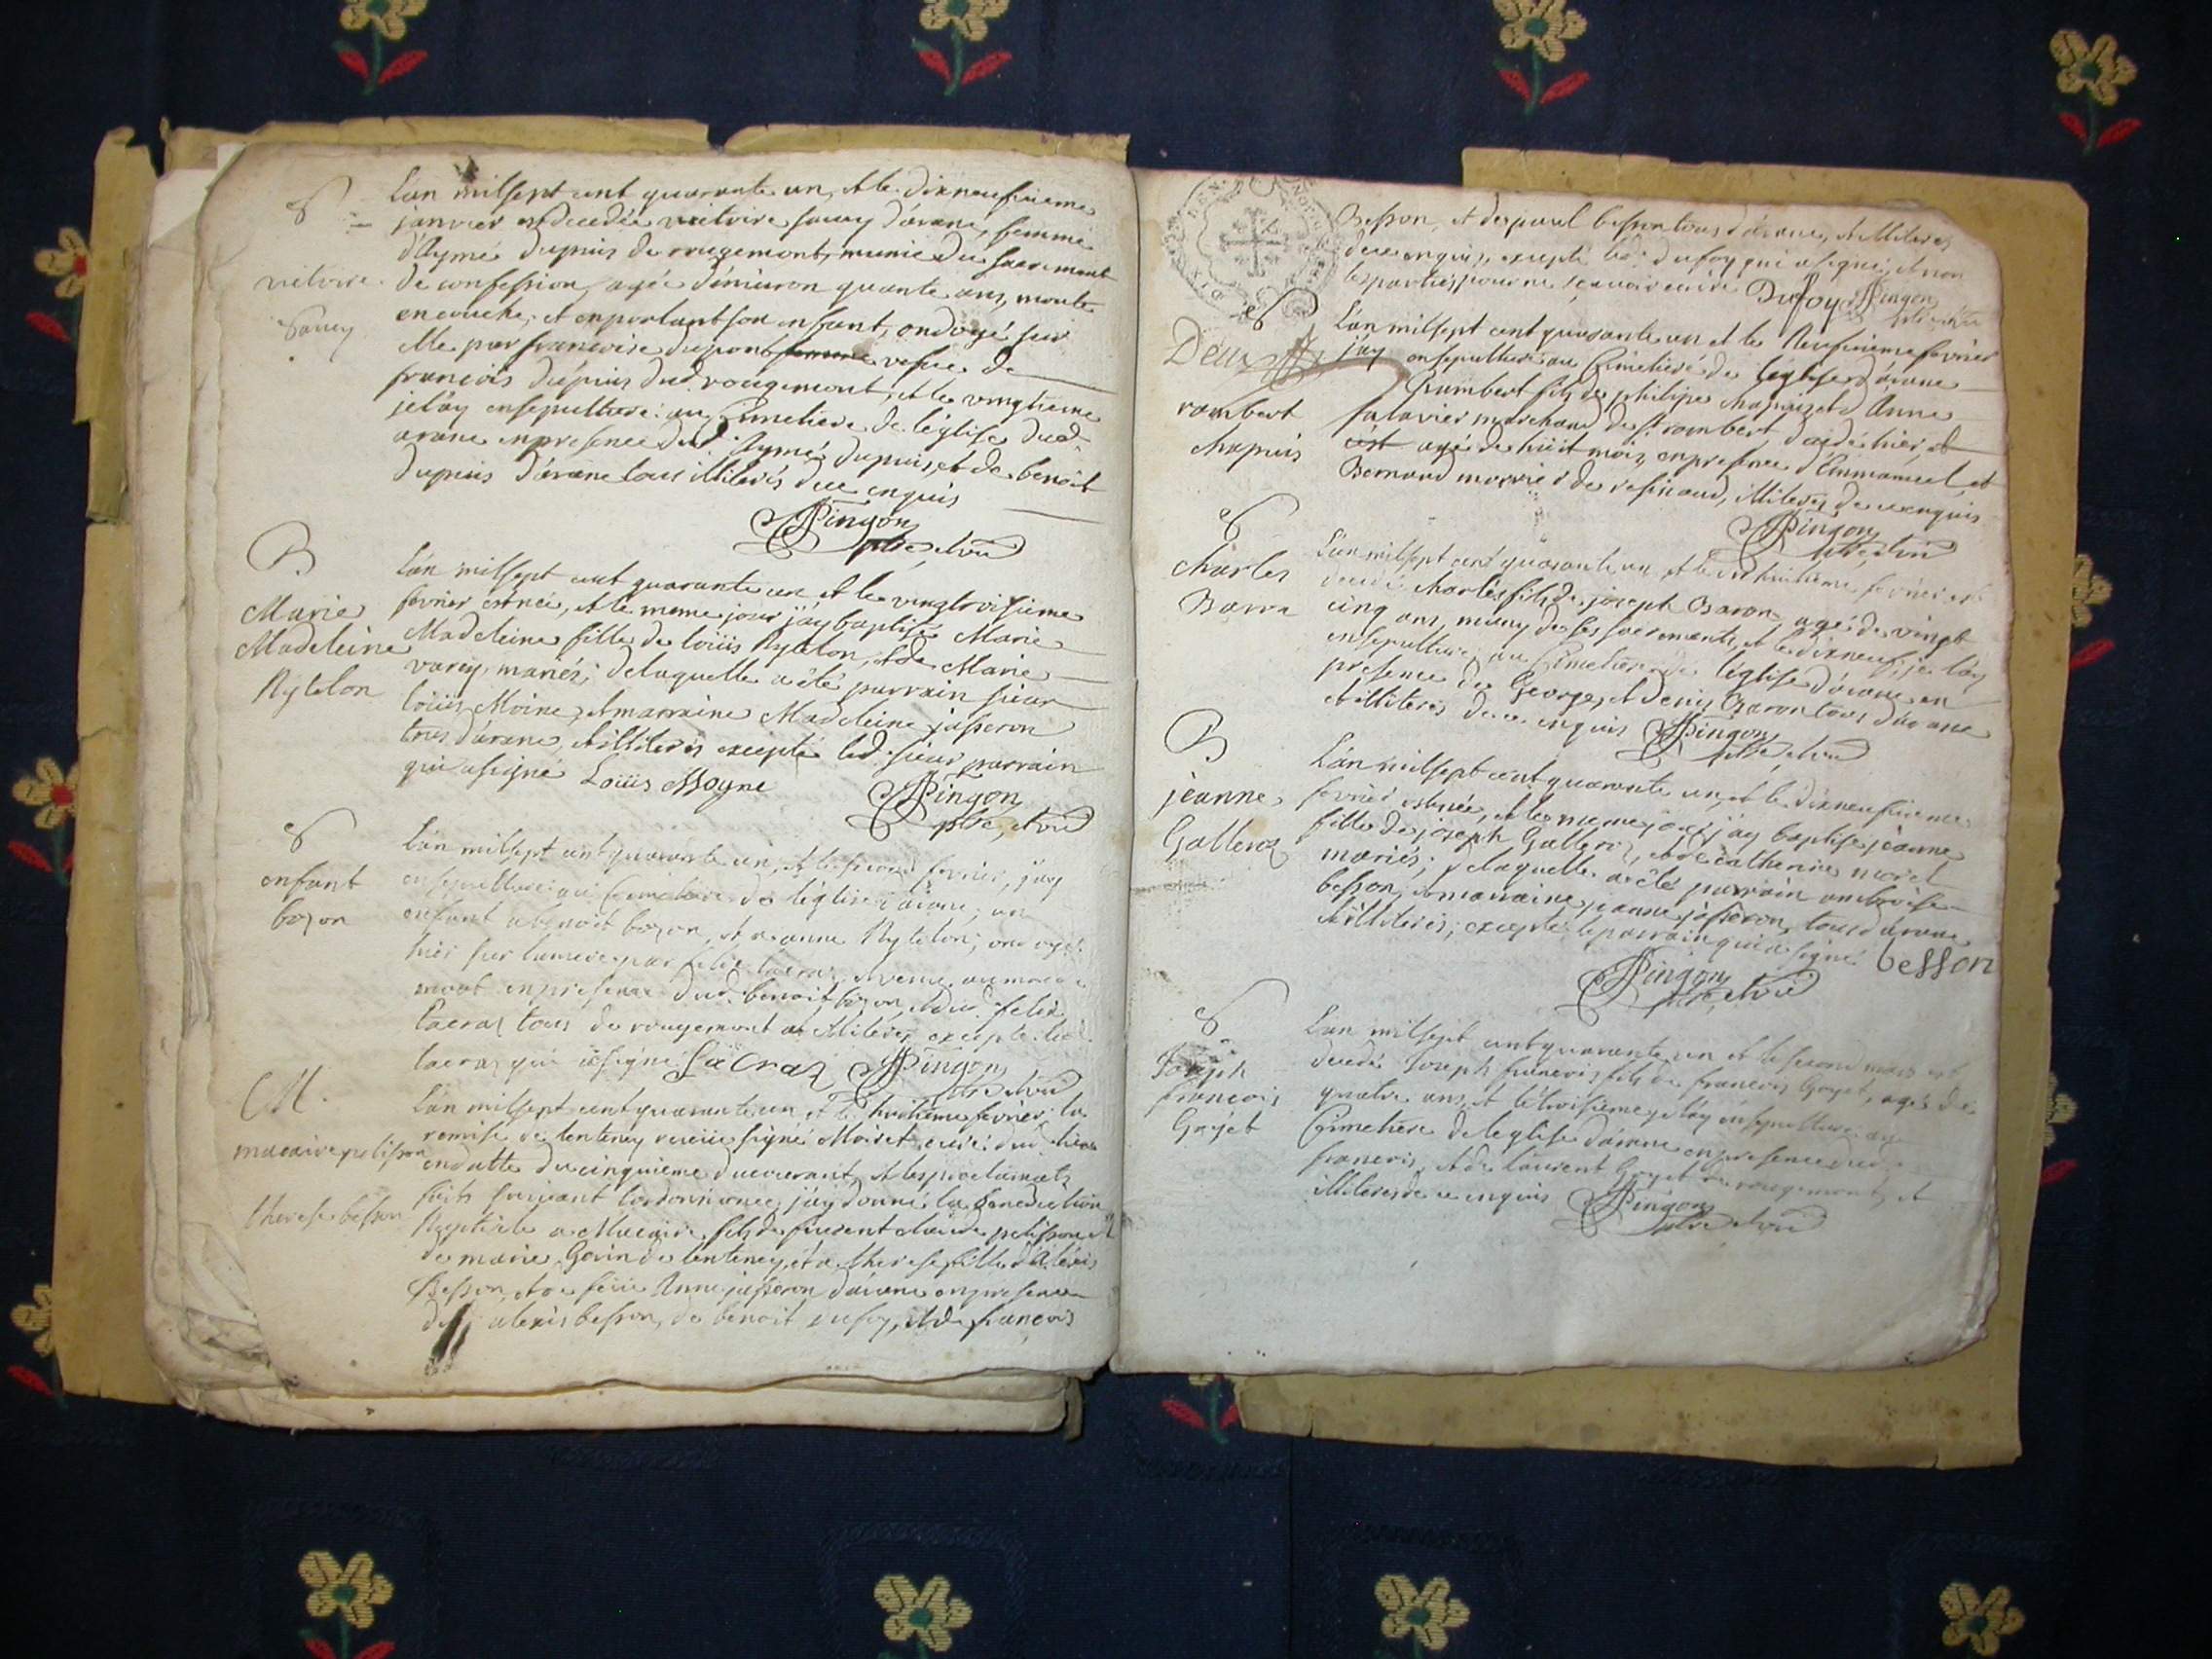 S
victoire
Savey
L'an mil sept cent quarante un, et le dixneufvieme
janvier est decedée victoire savey d'arane, femme
d'Aymé dupuis de rougemont, munie du sacrement
de confession, agée d'environ quarante ans, morte
en couche, et en portant son enfant, ondoyé sur
elle par francoise dupont femme vefve de
francois dupuis dud. rougemont, et le vingtieme
je l'ay ensepulturé au Cimetiere de l'église dud.
arane en presence dud. Aymé dupuis, et de benoit
dupuis d'arane tous illiterés de ce enquis
Pingon
ptre et vic
B
Marie
Madeleine
Rytelon
L'an mil sept cent quarante un et le vingtroisieme
fevrier est née, et le meme jour j'ay baptisé Marie
Madeleine fille de loüis Rytelon, et de Marie
varey, mariés; de laquelle a été parrain sieur
loüis Moine, et marraine Madeleine jasseron
tous d'arane, et illiterés excepté led. sieur parrain
qui a signé Loüis Moyne
Pingon
ptre, et vic
S
enfant
bozon
L'an mil sept cent quarante un, et le second fevrier, j'ay
ensepulturé au Cimetiere de l'église d'arane, un
enfant a benoit bozon, et a anne Rytelon, ondoyé
hier sur la mere par felix lacraz, et venu au monde
mort en presence dud. benoit bozon, et dud. felix
lacraz tous de rougemont et illiterés excepté led.
lacraz qui a signé LaCraz Pingon
ptre et vic
M.
macaire pelisson
therese besson
L'an mil sept cent quarante un et le huitieme fevrier la
remise de lenteney receüe signé Moiret curé dud. lieu
en datte du cinquieme du courant, et les proclamats
faits suivant l'ordonnance, j'ay donné la benediction
Nuptiale a Macaire fils de furent claude pelisson et
de marie Gorin de lenteney, et a therese fille d'Alexis
Besson, et de feüe Anne jasseron d'arane en presence
dud. alexis besson, de benoit dufoy, et de francois
Besson, et de paul besson tous d'arane, et illiterés
de ce enquis, excepté led. dufoy qui a signé, et non
les parties pour ne sçavoir ecrire Dufoy Pingon
ptre et vic
S
Deux
rambert
chapuis
L'an mil sept cent quarante un et le Neufvieme fevrier
j'ay ensepulturé au Cimetiere de l'église d'arane
rambert fils de philipe chapuis et d'Anne
Savarier marchand de St rambert, decedé hier, et
est agé de huit mois, en presence d'Emmanuel, et
Bernard morrier de resinand, illiterés de ce enquis
Pingon
ptre et vic
S
Charles
Baron
L'an mil sept cent quarante un, et le dix huitieme fevrier est
decedé charles fils de joseph Baron, agé de vingt
cinq ans, muny de ses sacrements, et le dixneuf, je l'ay
ensepulturé au Cimetiere de l'église d'arane en
presence de George, et denis Baron tous d'arane
et illiterés de ce enquis Pingon
ptre et vic
B
jeanne
Galleraz
L'an mil sept cent quarante un, et le dixneufvieme
fevrier est née, et le meme jour j'ay baptisé jeanne
fille de joseph Galleraz, et de catherine moret
mariés; de laquelle a été parrain ambroise
besson, et marraine jeanne jasseron, tous d'arane
et illiterés; excepté le parrain qui a signé besson
Pingon
ptre et vic
S
Joseph
francois
Goyet
L'an mil sept cent quarante un et le second mars est
decedé Joseph francois fils de francois Goyet, agé de
quatre ans, et le troisieme je l'ay ensepulturé au
Cimetiere de l'eglise d'arane en presence dud.
francois, et de laurent Goyet de rougemont, et
illiterés de ce enquis Pingon
ptre et vic